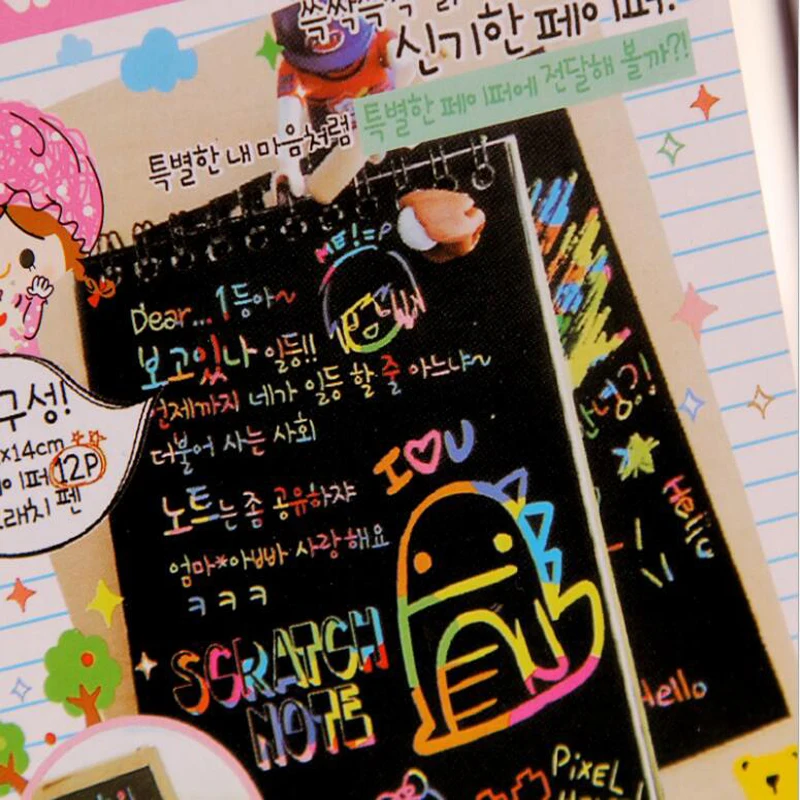 신기한 페이퍼!
특별한 내 마음처럼 특별한 페이퍼에 전달해 볼까?!
ME!=P
Dear... 1등아~
보고있나 일등!!
언제까지 네가 일등 할 줄 아느냐~
더불어 사는 사회
노트는 좀 공유하쟈
엄마*아빠 사랑해요
ㅋㅋㅋ
I♡U
SCRATCH
NOTE
PiXEL
구성!
x14cm
이퍼 12P
래치 펜
안녕?!
Hello
Hello